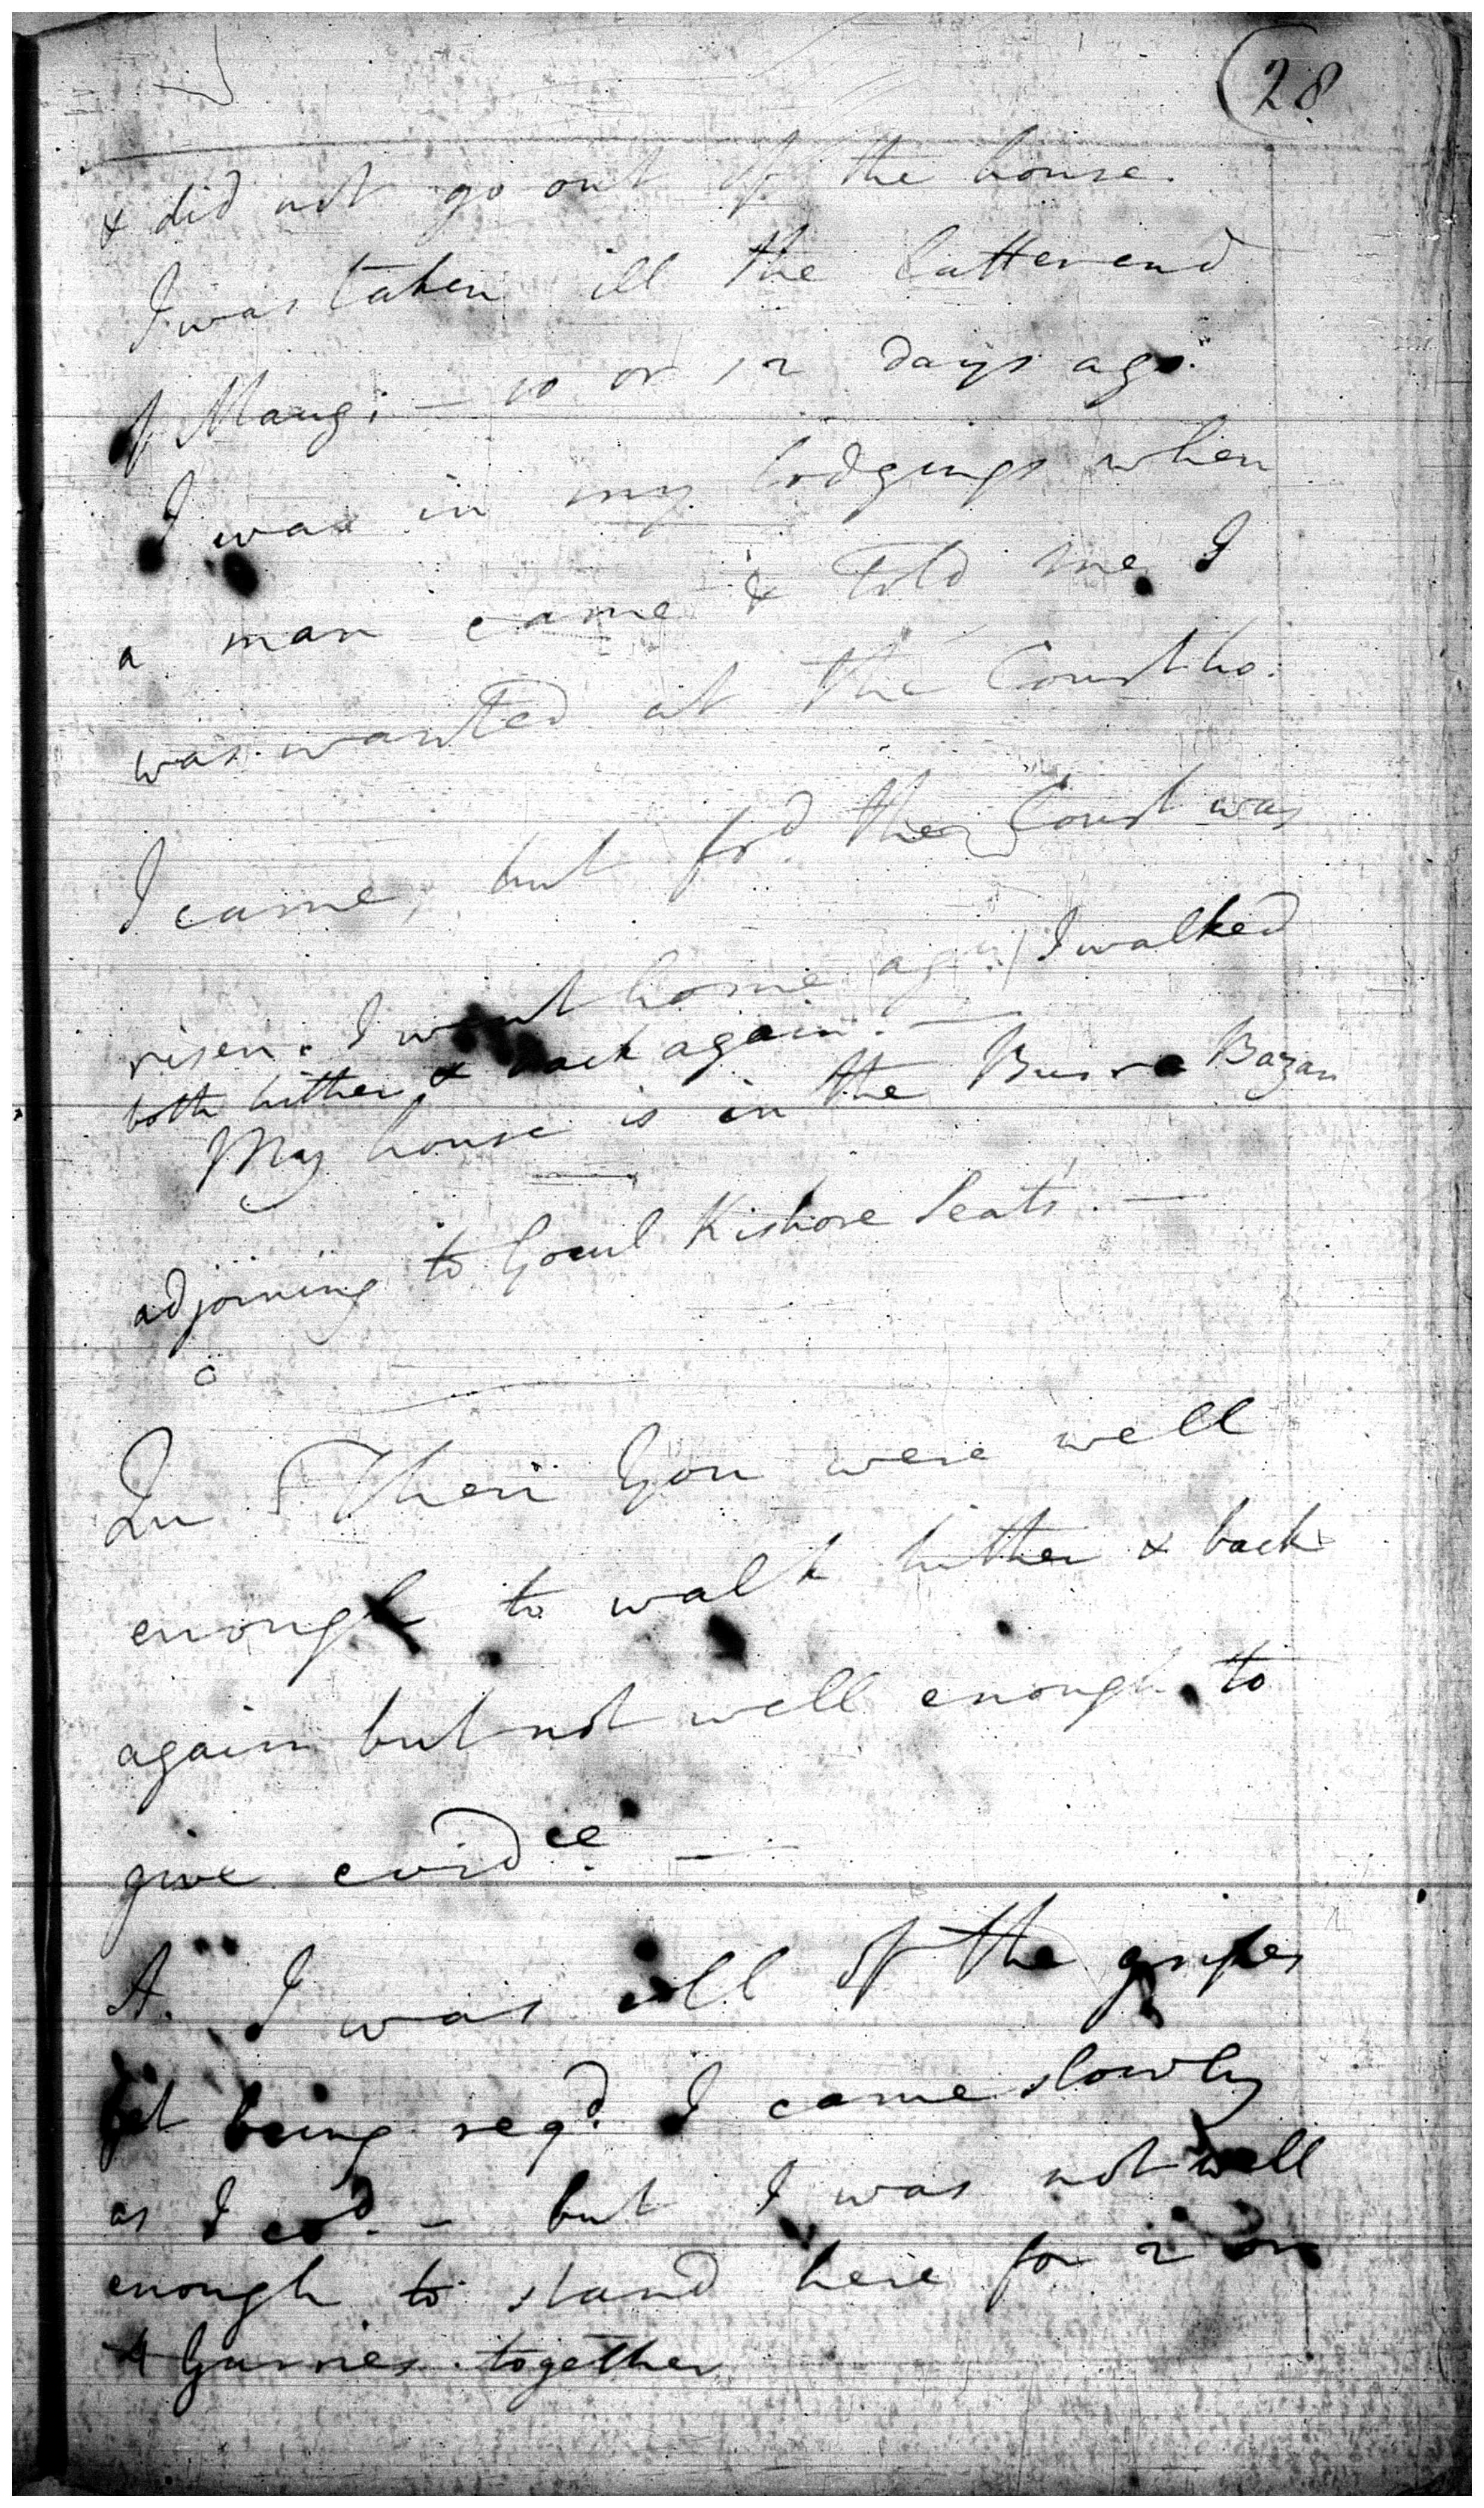 28
& did not go out of the house.
I was taken ill the latter end
of Maug; — 10 or 12 days ago.
I was in my lodgings when
a man came & told me I
was wanted at the Court ho:
I came, but fo^d. the Court was
risen. I went home again I walked
both hither & back again. —
My house is in the Burra Bazar
adjoining to Gocul Kishore Seats. —
Qu Then You were well
enough to walk hither & back
again but not well enough to
give evid^ce. —
A. I was ill of the gripes
yet being req^d. I came slowly
as I co^d. — but I was not well
enough to stand here for 2 or
4 Gurries together